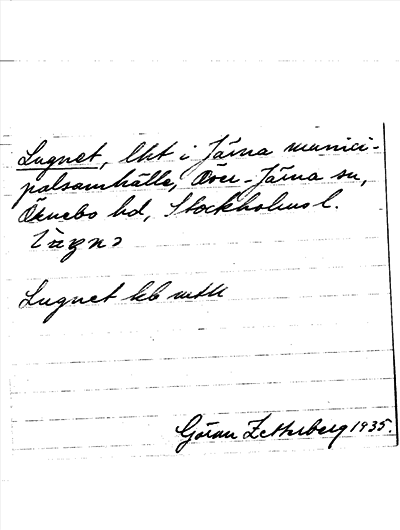 Lugnet, lht i Järna munici-
palsamhälle, Över-Järna sn,
Öknebo hd, Stockholms l.
Lugnet kb
Göran Zetterberg 1935.